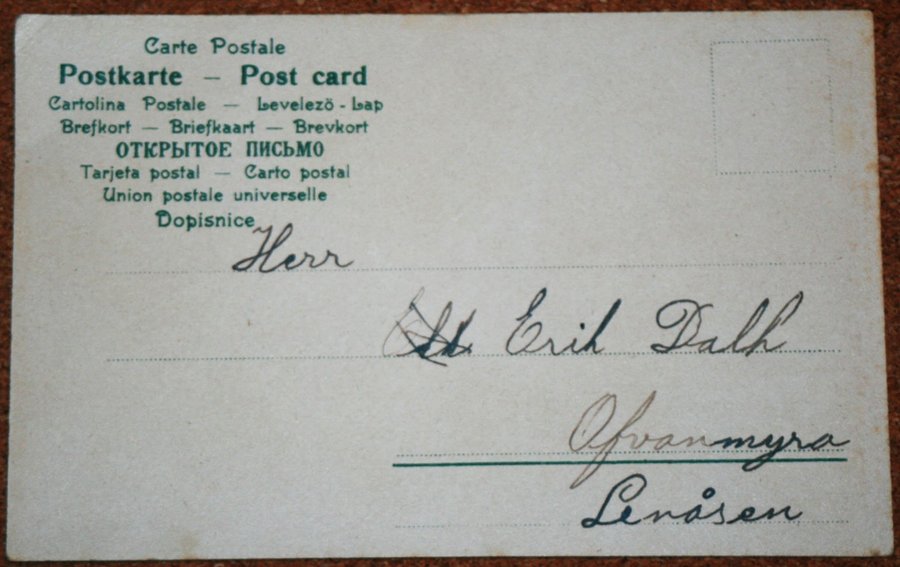 Carte Postale
Postkarte — Post card
Cartolina Postale — Levelező - Lap
Brefkort — Briefkaart — Brevkort
ОТКРЫТОЕ ПИСЬМО
Tarjeta postal — Carto postal
Union postale universelle
Dopisnice
Herr
Erik Dalh
Ofvanmyra
Lenåsen